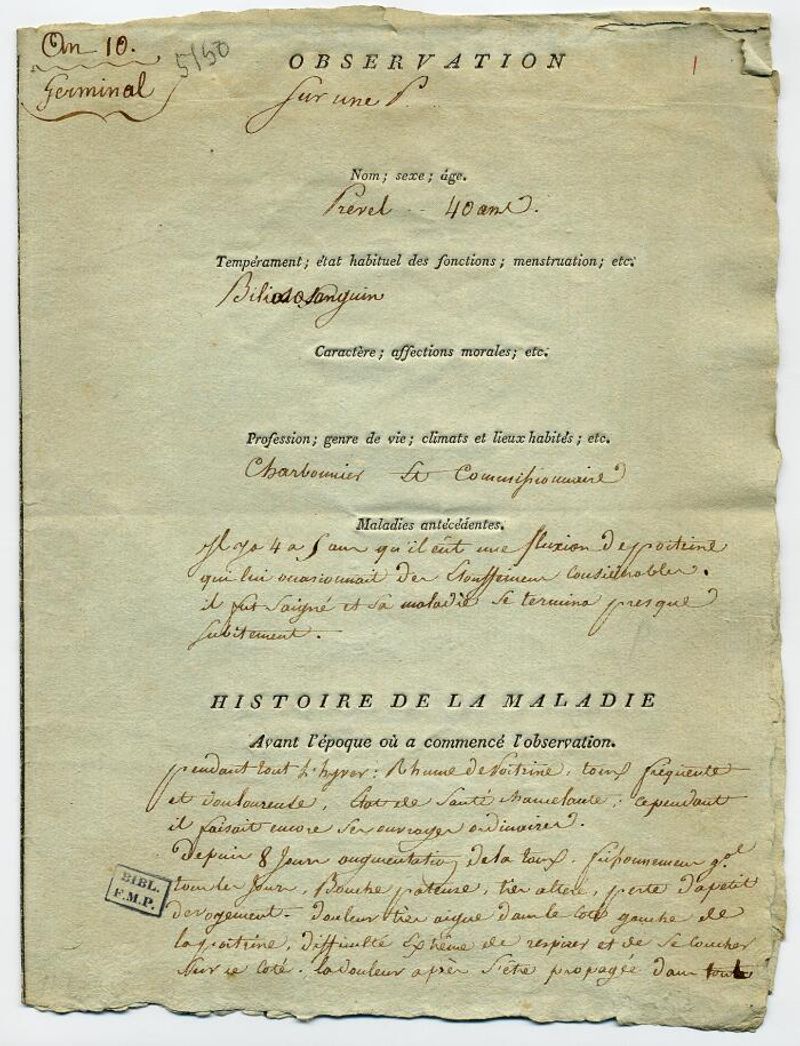 An 10.
Germinal
5/50
OBSERVATION
1
Sur une P.
Nom; sexe; âge.
Prevel -- 40 ans.
Tempérament; état habituel des fonctions; menstruation; etc.
Bilioso Sanguin
Caractère; affections morales; etc.
Profession; genre de vie; climats et lieux habités; etc.
Charbonnier et Commissionnaire
Maladies antécédentes.
Il y a 4 a 5 ans qu'il eût une fluxion de poitrine
qui lui occasionnait des Etouffemens considérables.
il fut saigné et sa maladie se termina presque
subitement.
HISTOIRE DE LA MALADIE
Avant l'époque où a commencé l'observation.
pendant tout L'hyver: Rhume de Poitrine, toux fréquente
et douloureuse, Etat de Santé chancelante, cependant
il faisait encore ses ouvrages ordinaires.
Depuis 8 Jours augmentation de la toux. frissonnemens g.al
tous les Jours, Bouche pateuse, très altéré, perte d'apétit
dévoyement - douleur très aigue dans le coté gauche de
la poitrine, difficulté Extrême de respirer et de se coucher
sur ce coté. la douleur après s'être propagée dans
BIBL.
F.M.P.